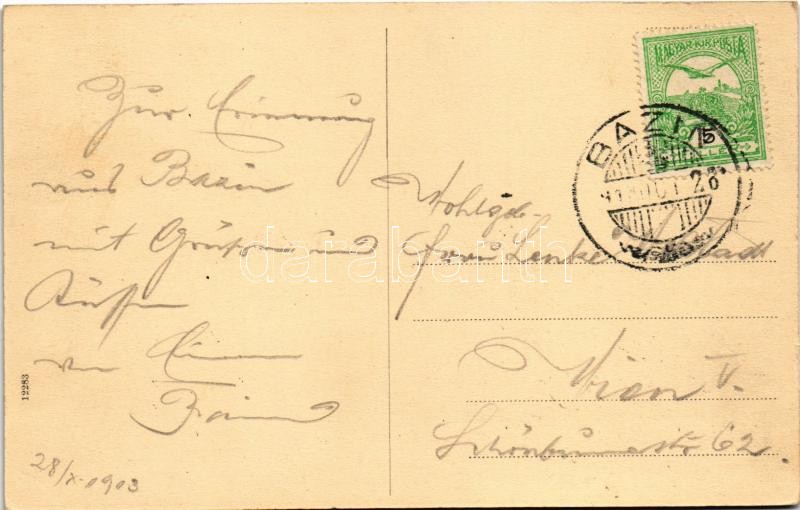 Zur Erinnerung
aus Bazin
mit Grüßen und
Küssen
von
28/X-0903
12283
MAGYAR KIR. POSTA
5
BAZIN
OCT 28
Wohlgeb.
Frau Lenke
Wien V.
Schönbrunnerstr. 62.
darabanth